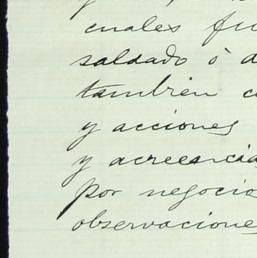 cuales fu
saldado ó d
también c
y acciones
y acreencia
por negocio
observacione